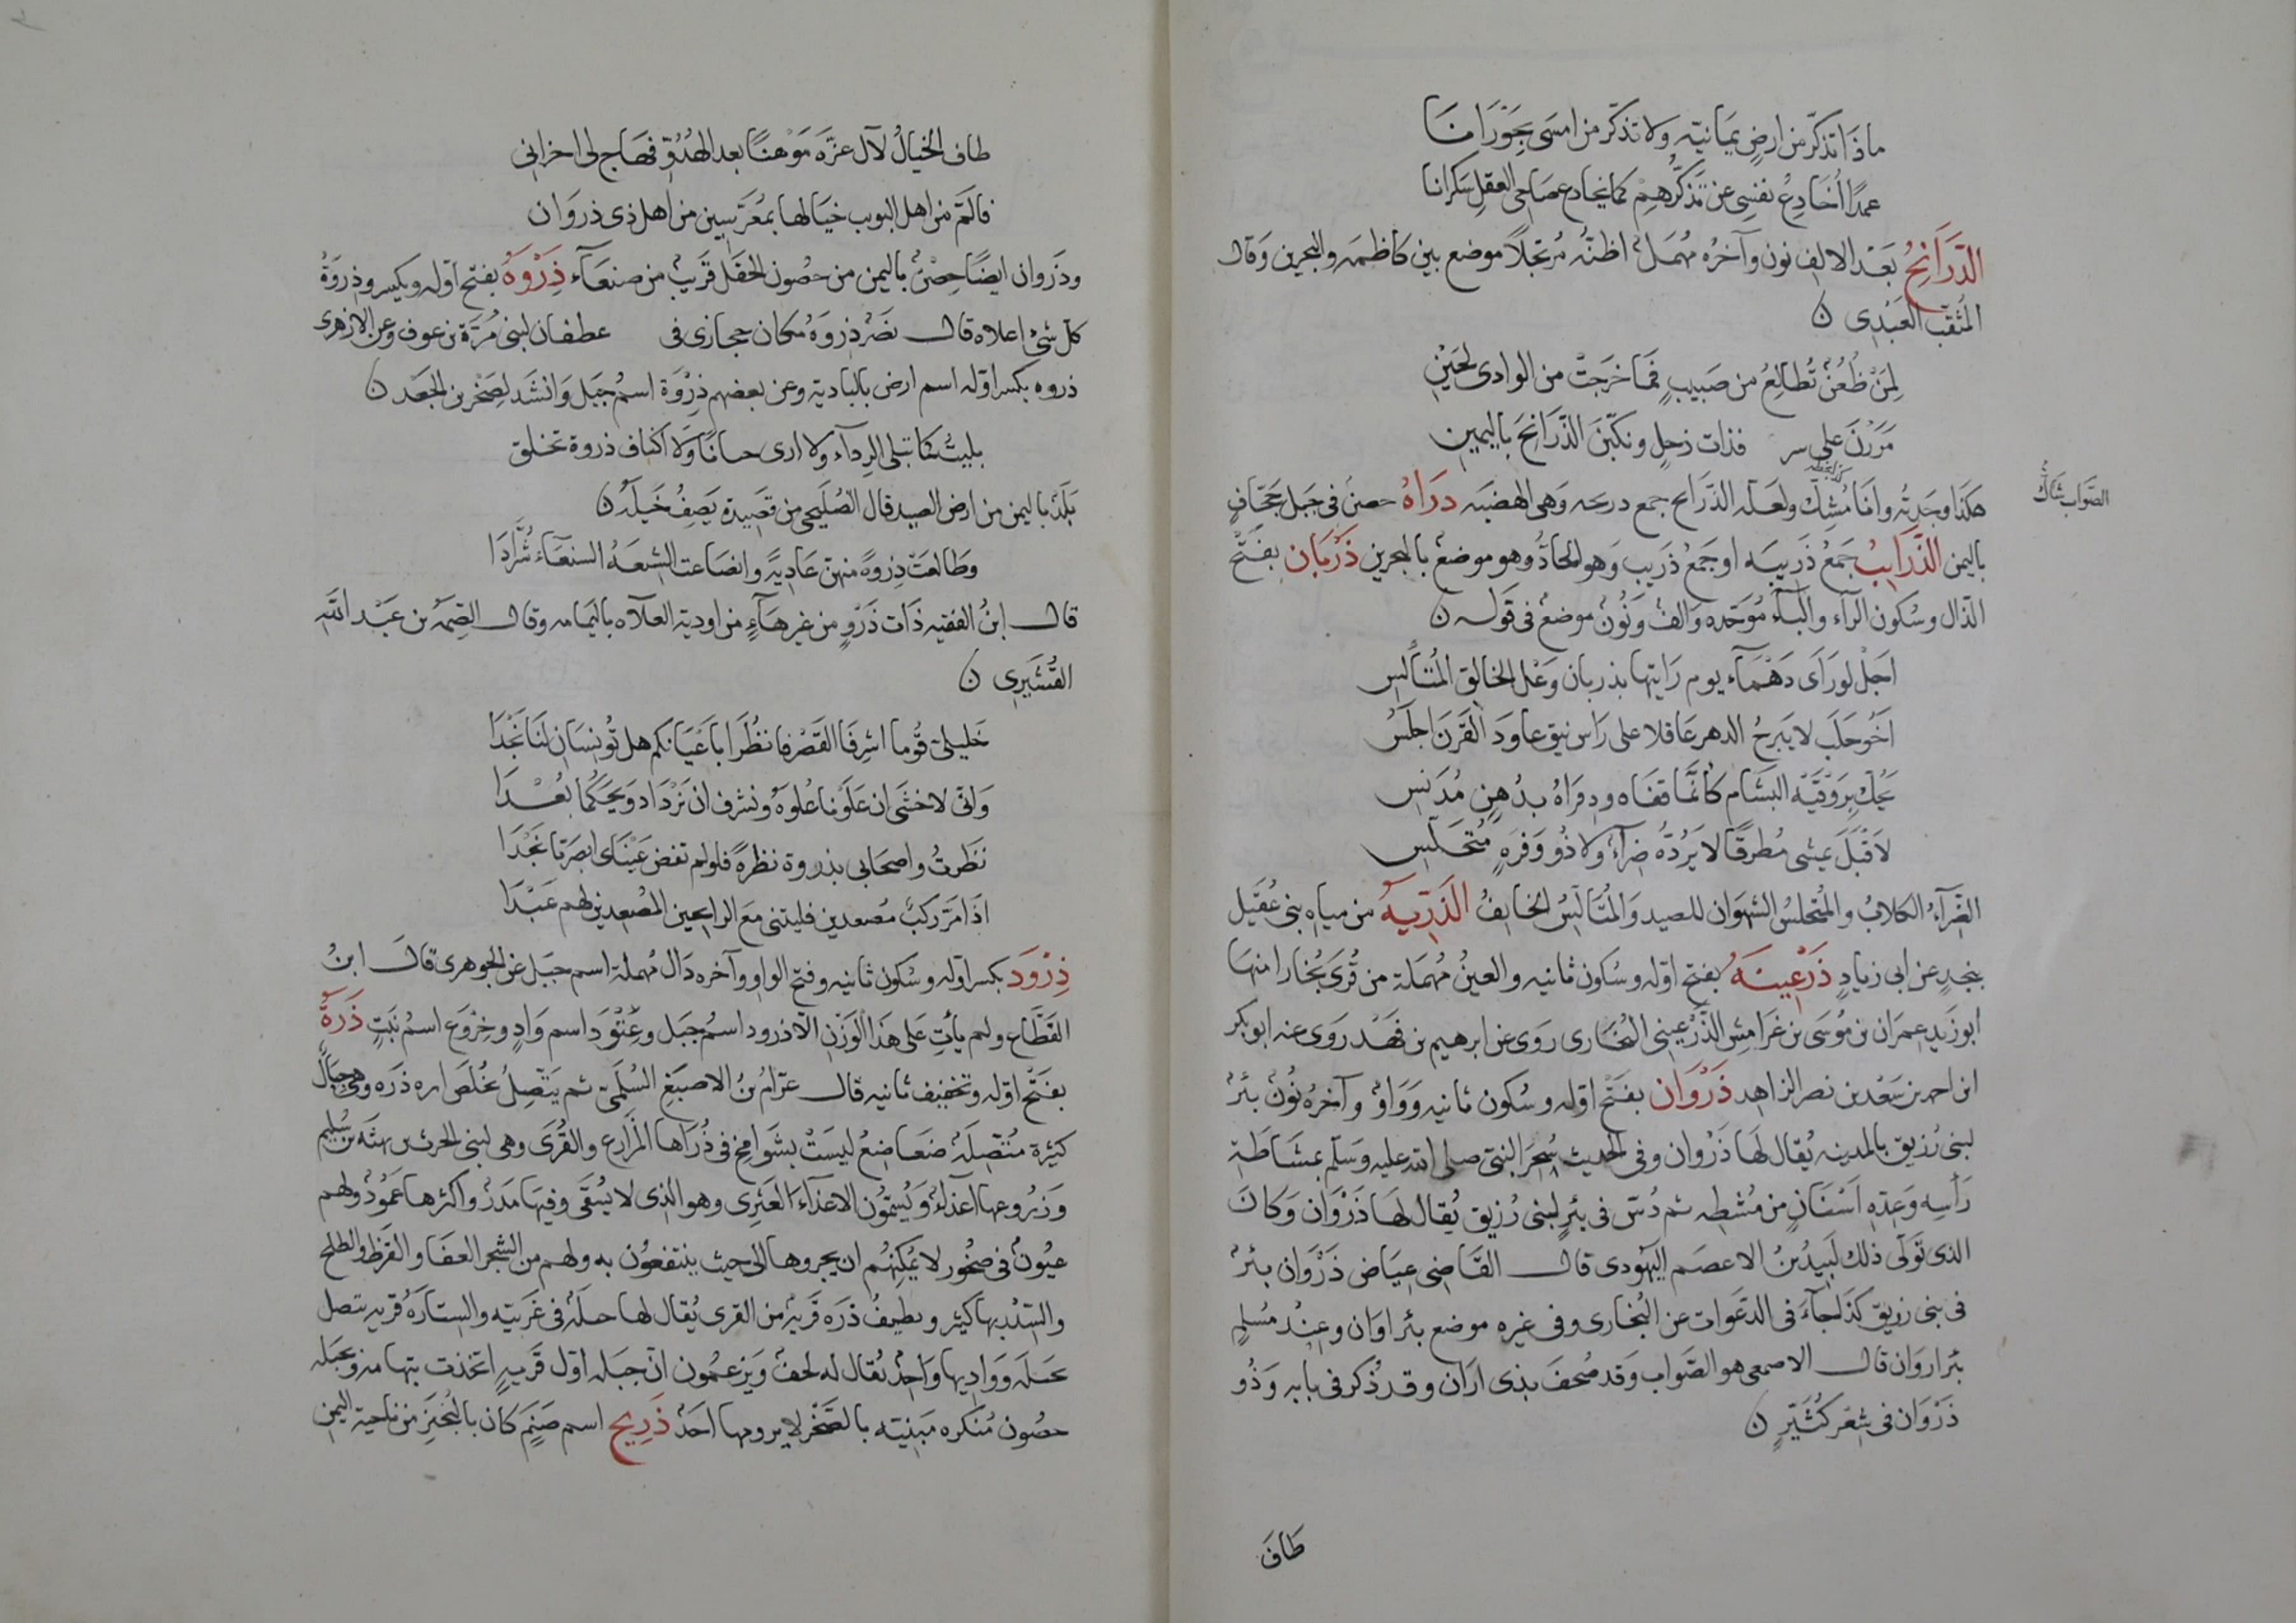 ماذا تذكّر من ارضٍ يمانيّه ولا تذكّر من امسى بجَوْرانا
عمدًا اُخادِعُ نفسى عن تذكّرهم كما يخادع صاحى العقلِ سكرانا
الذَّرَانِحُ بَعْد الالِف نون وآخرُه مُهمَلٌ اظنّهُ مُرتجلًا موضع بين كاظمه والبحرين وقال
المثقب العَبْدِى
لِمَنْ ظُعُنٌ تُطالِعُ من صَبيبٍ فما خرَجتْ من الوادى لحَيْنِ
مَرَرْنَ على سر فذات رَحلٍ ونكّبْنَ الذّرَانِحَ باليمينِ
هكذا وجَدتُه وانا مُشِكٌّ ولعَلّه الذّرايح جمع دريحه وَهى الهضبَه دَرَاهُ حصنٌ فى جبل جحَافٍ
كذا بخطه
الصّواب شَاكٌّ
باليمن الذَّرَايِبُ جَمعُ ذَرِيبَه او جَمعُ ذَريبٍ وَهو الحادُّ وهو موضعٌ بالبحرين ذَرْبَان بفتح
الذّال وسُكون الرآء والبآء مُوَحّده وَالفٌ ونُونٌ موضعٌ فى قَوله
اجَلْ لو رَاَى دَهْمَآء يوم رَايتها بذربان وَعْلُ الخالِقِ المُتَأَلّسِ
اخُو حلَبٍ لا يَبرحُ الدهرَ عَاقلا على رَاس نيقٍ عاوَدَ القَرنَ اجلَسُ
يَحُكّ بِرَوْقَيْه البَشَامَ كأنّما قفَاه ودِفرَاهُ بدُهنٍ مُدَنسِ
لاَقْبَلَ يمشى مُطرِقًا لا يَرُدّهُ ضِرآءٌ ولا ذُو وَفرَهٍ مُتحَلّسِ
الضّرآءُ الكلابُ والمُتحلسُ الشهوَان للصيد وَالمُتَألّسُ الخايفُ الذّرِّيَهُ من مياهِ بنى عُقَيل
بنجدٍ عن ابى زيادٍ ذَرْعِينَهُ بفتح اوّله وسُكون ثانيه والعينُ مُهمَلة من قُرَى بُخارا منها
ابو زَيدٍ عمرَان بن مُوسَى بن غرَامِش الذّرعينى البُخارى روَى عن ابرهيم بن فهْد رَوى عنه ابو بكر
ابن احمد بن سَعْد بن نصر الزاهد ذَرْوَان بفَتْح اوّله وسُكون ثانيه وَوَاوٌ وآخرُهُ نُونٌ بئرٌ
لبنى زُرَيق بالمدينه يُقال لهَا ذَرْوان وفى الحديث سُحِرَ النبّى صلى الله عليه وسَلم بمُشَاطَة
رَأسِه وَعِدّه اَسْنَانٍ من مُشطِه ثم دُسّ فى بئرٍ لبنى زُرَيق يُقال لهَا ذَرْوَان وَكان
الذى تَولّى ذلك لَبِيدُ بنُ الاعصَم اليهُودى قال القاضى عِيَاض ذَرْوَان بئرٌ
فى بنى زريق كذا جآءَ فى الدّعَوات عن البُخارى وفى غيره موضع بئر اوَان وعِنْد مُسْلمٍ
بئر اروَان قال الاصمعى هو الصّواب وَقد صُحفَ بذى اَرَان وقد ذُكر فى بابه وَذُو
ذَرْوَان فى شِعْر كُثَيّرٍ
طَافَ
طاف الخيالُ لآل عزّه مَوْهِنًا بعد الهُدُوّ فهَاج لى احزانى
فالَمّ من اهل البويب خيَالها بمُعَرّسينَ من اهل ذى ذروَان
وذَروان ايضًا حِصْنٌ باليمن من حصُون الحقل قَريبٌ من صنعَآء ذِرْوَهُ بفتح اوّله ويكسر وذِروَةُ
كلّ شىءٍ اعلاه قال نَصْرٌ ذِروَهُ مكان حجازى فى عطفان لبنى مُرّة بن عوف وعن الازهرى
ذروه بكسر اوّله اسم ارض بالباديه وعن بعضهم ذِرْوَة اسمُ جَبَل وَانشَد لِصَخْر بن الجَعْد
بليتُ كما تبلى الرِدآء ولا ارى حسانًا ولا اكناف ذروة تخلق
بَلَدٌ باليمن من ارض الصيد قال الصُلَيحى من قصيدة يَصِفُ خَيلَهُ
وَطَالعَتْ ذِروةً منهنّ عَادِيَةً وانصَاعت الشيعهُ السنعَآء شُرَّدَا
قال ابنُ الفقيه ذات ذَرْوٍ من غير هَآءٍ من اودية العلاه باليَمامه وقال الصِمّه بن عَبْد الله
القُشَيرِى
خَليلىّ قُوما اشرِفَا القَصْر فانظُرَا باَعْيَانكم هل تُونِسَانِ لنَا نَجْدَا
وَانّى لاخشَى ان عَلَوْنا عُلوّهُ ونشرف ان نزدَاد وَيحكُما بُعْدَا
نَظرتُ واصحَابى بذروة نظرةً فلو لم تفض عَيْنَاى ابصَرَتا نَجْدَا
اذا مَرّ ركبٌ مُصعدين فليتنى مع الرايحين المُصْعدين لهم عَبْدَا
ذِرْوَد بكسر اوّله وسُكون ثانيه وفتح الواو وآخره دَال مُهملة اسم جبَل عن الجوهرى قال ابنُ
القَطّاع ولم يأتِ على هَذا الوَزْنِ الّا ذرود اسمُ جَبل وعِتْوَد اسم وَادٍ وخِرْوَع اسمُ نَبتٍ ذَرَهُ
بفَتْح اوّله وتخفيف ثانيه قال عرّامُ بنُ الاصبَغ السُلَمّى ثم يَتّصِلُ بخُلصَ اره ذَرَه وهى جبَالٌ
كثيرَة مُتّصِلَهُ ضعَاضعُ ليسَتْ بشَوامِخ فى ذُرَاهَا المزَارِع والقُرَى وهى لبنى الحرث بن بهثَه بن سُليم
وَزُروعها اعذآءٌ وَيُسمّون الاعذآءَ العَثَرِى وهو الذى لا يُسْقَى وفيهَا مَدَرٌ واكثرها عَمُودٌ ولهم
عيُونٌ فى صُخور لا يُمكِنُهُم ان يجروها الى حيث ينتفعُون به ولهم من الشجر العفَا والقرَظ والطلح
والسّدْر بها كثير ويطيفُ ذَرَه قَريهٌ من القرى يُقال لها جبلَهُ فى غَربيّه والسِتارَهُ قريه تتصل
بجبلَه وَوادِيها وَاحِدٌ يُقال له لحفٌ وَيَزعمُون انّ جبَله اوّل قَريهٍ اتخذت بتهامه وبجبله
حصُون مُنكره مَبنيّه بالصّخْر لا يرومها احَدٌ ذَرِيح اسم صَنَمٍ كان بالنُجَيرِ من ناحية اليمن